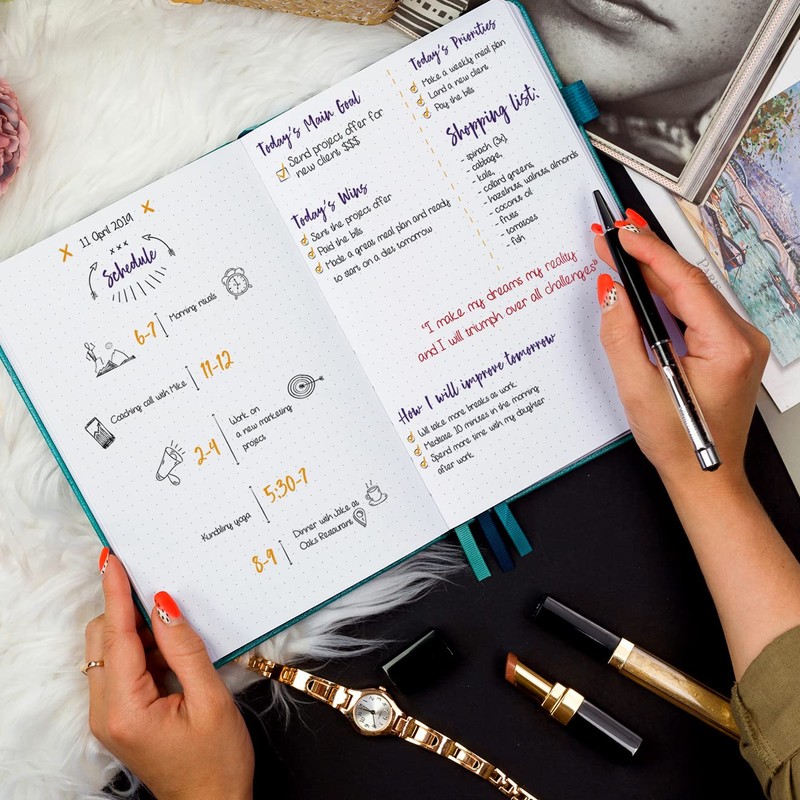 11 April 2019
x x x
Schedule
6-7
Morning rituals
Coaching call with Mike
11-12
2-4
Work on
a new marketing
project
Kundliny yoga
5:30-7
8-9
Dinner with Jake at
Oaks Restaurant
Today's Main Goal
Send project offer for
new client $$$
Today's Wins
Sent the project offer
Paid the bills
Made a great meal plan and ready
to start on a diet tomorrow
Today's Priorities
Make a weekly meal plan
Land a new client
Pay the bills
Shopping list:
- spinach (3x)
- cabbage,
- kale,
- collard greens,
- hazelnuts, walnuts, almonds
- coconut oil
- fruits
- tomatoes
- fish
"I make my dreams my reality
and I will triumph over all challenges"
How I will improve tomorrow
Will take more breaks at work
Meditate 10 minutes in the morning
Spend more time with my daughter
after work